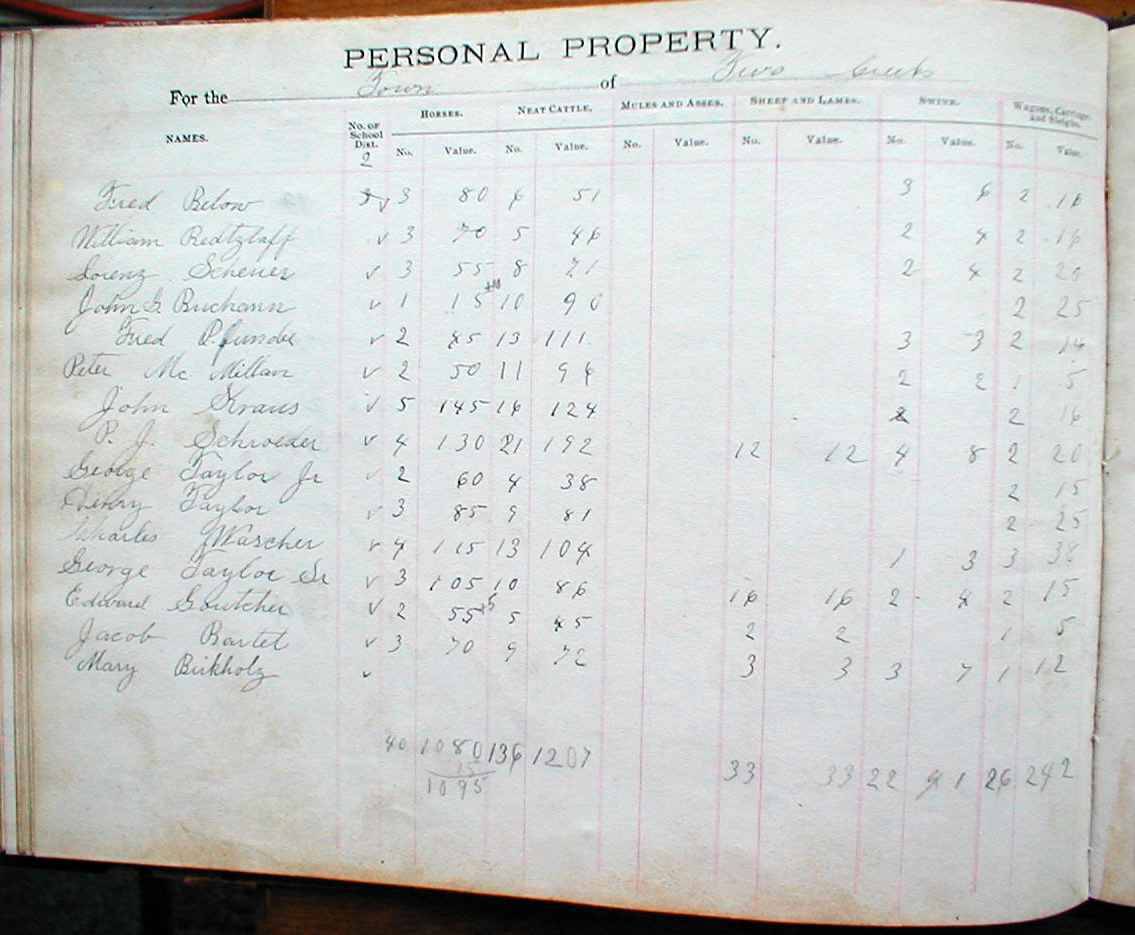 PERSONAL PROPERTY.
For the Town of Two Creeks
NAMES. No. of School Dist. 2 HORSES. NEAT CATTLE. MULES AND ASSES. SHEEP AND LAMBS. SWINE. Wagons, Carriages and Sleighs.
No. Value. No. Value. No. Value. No. Value. No. Value. No. Value.
Fred Below 3 80 6 51 3 6 2 16
William Redtzlaff 3 70 5 46 2 4 2 16
Lorenz Scheuer 3 55 8 71 2 4 2 20
John G. Buchann 1 15 +10 10 90 2 25
Fred Pfunder 2 45 13 111 3 3 2 14
Peter Mc Millan 2 50 11 94 2 2 1 5
John Kraus 5 145 16 124 2 2 16
P. J. Schroeder 4 130 21 192 12 12 4 8 2 20
George Taylor Jr 2 60 4 38 2 15
Henry Taylor 3 85 9 81 2 25
Charles Wascher 4 115 13 104 1 3 3 38
George Taylor Sr 3 105 10 86 16 16 2 4 2 15
Edward Goutcher 2 55 +5 5 45 2 2 1 5
Jacob Bartel 3 70 9 72 3 3 3 7 1 12
Mary Birkholz
40 1080 136 1207 33 33 22 41 26 242
15
1095